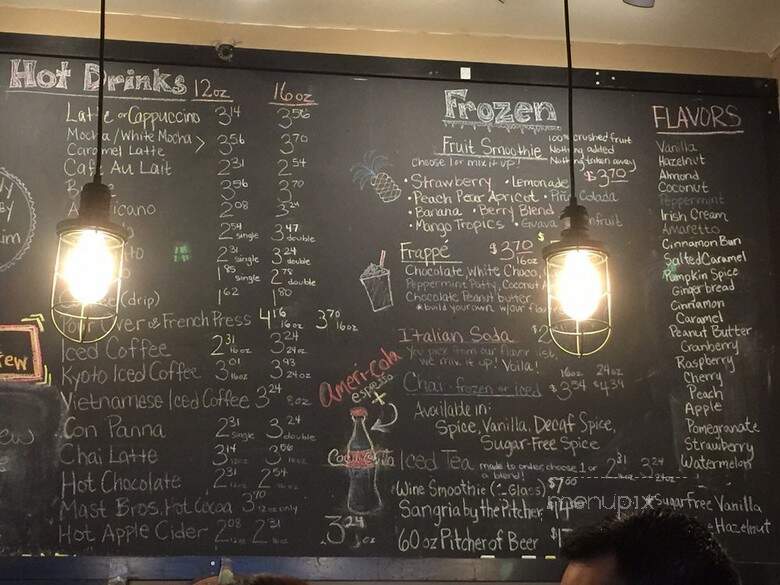 Hot Drinks 12oz 16oz
Latte or Cappuccino 3.14 3.56
Mocha/White Mocha >
Caramel Latte 3.56 3.70
Café Au Lait 2.31 2.54
3.56 3.70
2.08 3.24
2.54 single 3.47 double
2.31 single 3.24 double
1.85 single 2.78 double
(drip) 1.62 1.80
Pour Over or French Press 4.16 16oz 3.70 16oz
Iced Coffee 2.31 16oz 3.24 24oz
Kyoto Iced Coffee 3.01 16oz 3.93 24oz
Vietnamese Iced Coffee 3.24 8oz
Con Panna 2.31 single 3.24 double
Chai Latte 3.14 3.56
Hot Chocolate 2.31 2.54
Mast Bros. Hot Cocoa 3.70 12oz only
Hot Apple Cider 2.08 12oz 2.31
Ameri-Cola
espresso
+
Coca-Cola
3.24
Frozen
Fruit Smoothie
100% crushed fruit
Nothing added
Nothing taken away
choose 1 or mix it up! $3.70
• Strawberry • Lemonade • Piña Colada
• Peach Pear Apricot
• Banana • Berry Blend
• Mango Tropics • Guava
Frappé $3.70 16oz
Chocolate, White Choco,
Peppermint Patty, Coconut
Chocolate Peanut butter
*build your own w/our
Italian Soda
You pick from our flavor list,
we mix it up! Voila!
Chai-frozen or iced 16oz 3.54 24oz 4.34
Available in:
Spice, Vanilla, Decaf Spice,
Sugar-Free Spice
Iced Tea made to order, choose 1 or a blend! 2.31 3.24 24oz
Wine Smoothie ( Glass) $7.00
Sangria by the Pitcher
60 oz Pitcher of Beer
FLAVORS
Vanilla
Hazelnut
Almond
Coconut
Peppermint
Irish Cream
Amaretto
Cinnamon Bun
Salted Caramel
Pumpkin Spice
Gingerbread
Cinnamon
Caramel
Peanut Butter
Cranberry
Raspberry
Cherry
Peach
Apple
Pomegranate
Strawberry
Watermelon
*Sugar Free Vanilla
Hazelnut
menupix